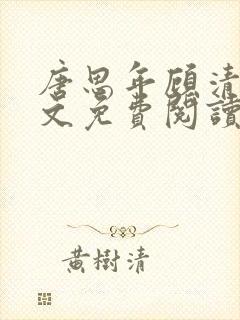 唐思年顾清
文免費閱讀
黃樹清